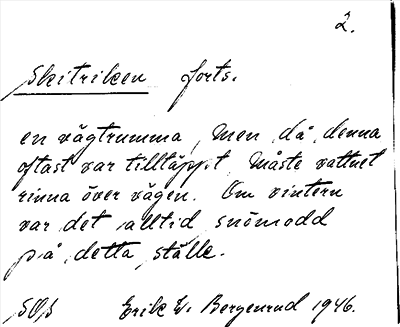 2.
Skitriken forts.
en vägtrumma, men då denna
oftast var tilltäppt måste vattnet
rinna över vägen. Om vintern
var det alltid snömodd
på detta ställe.
Erik W. Bergenrud 1946.